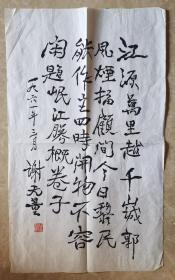 江源万里越千岁郭
风烟指顾间今日黎民
能作主四时开物不容
闲题岷江胜概卷子
一九六一年三月 谢无量